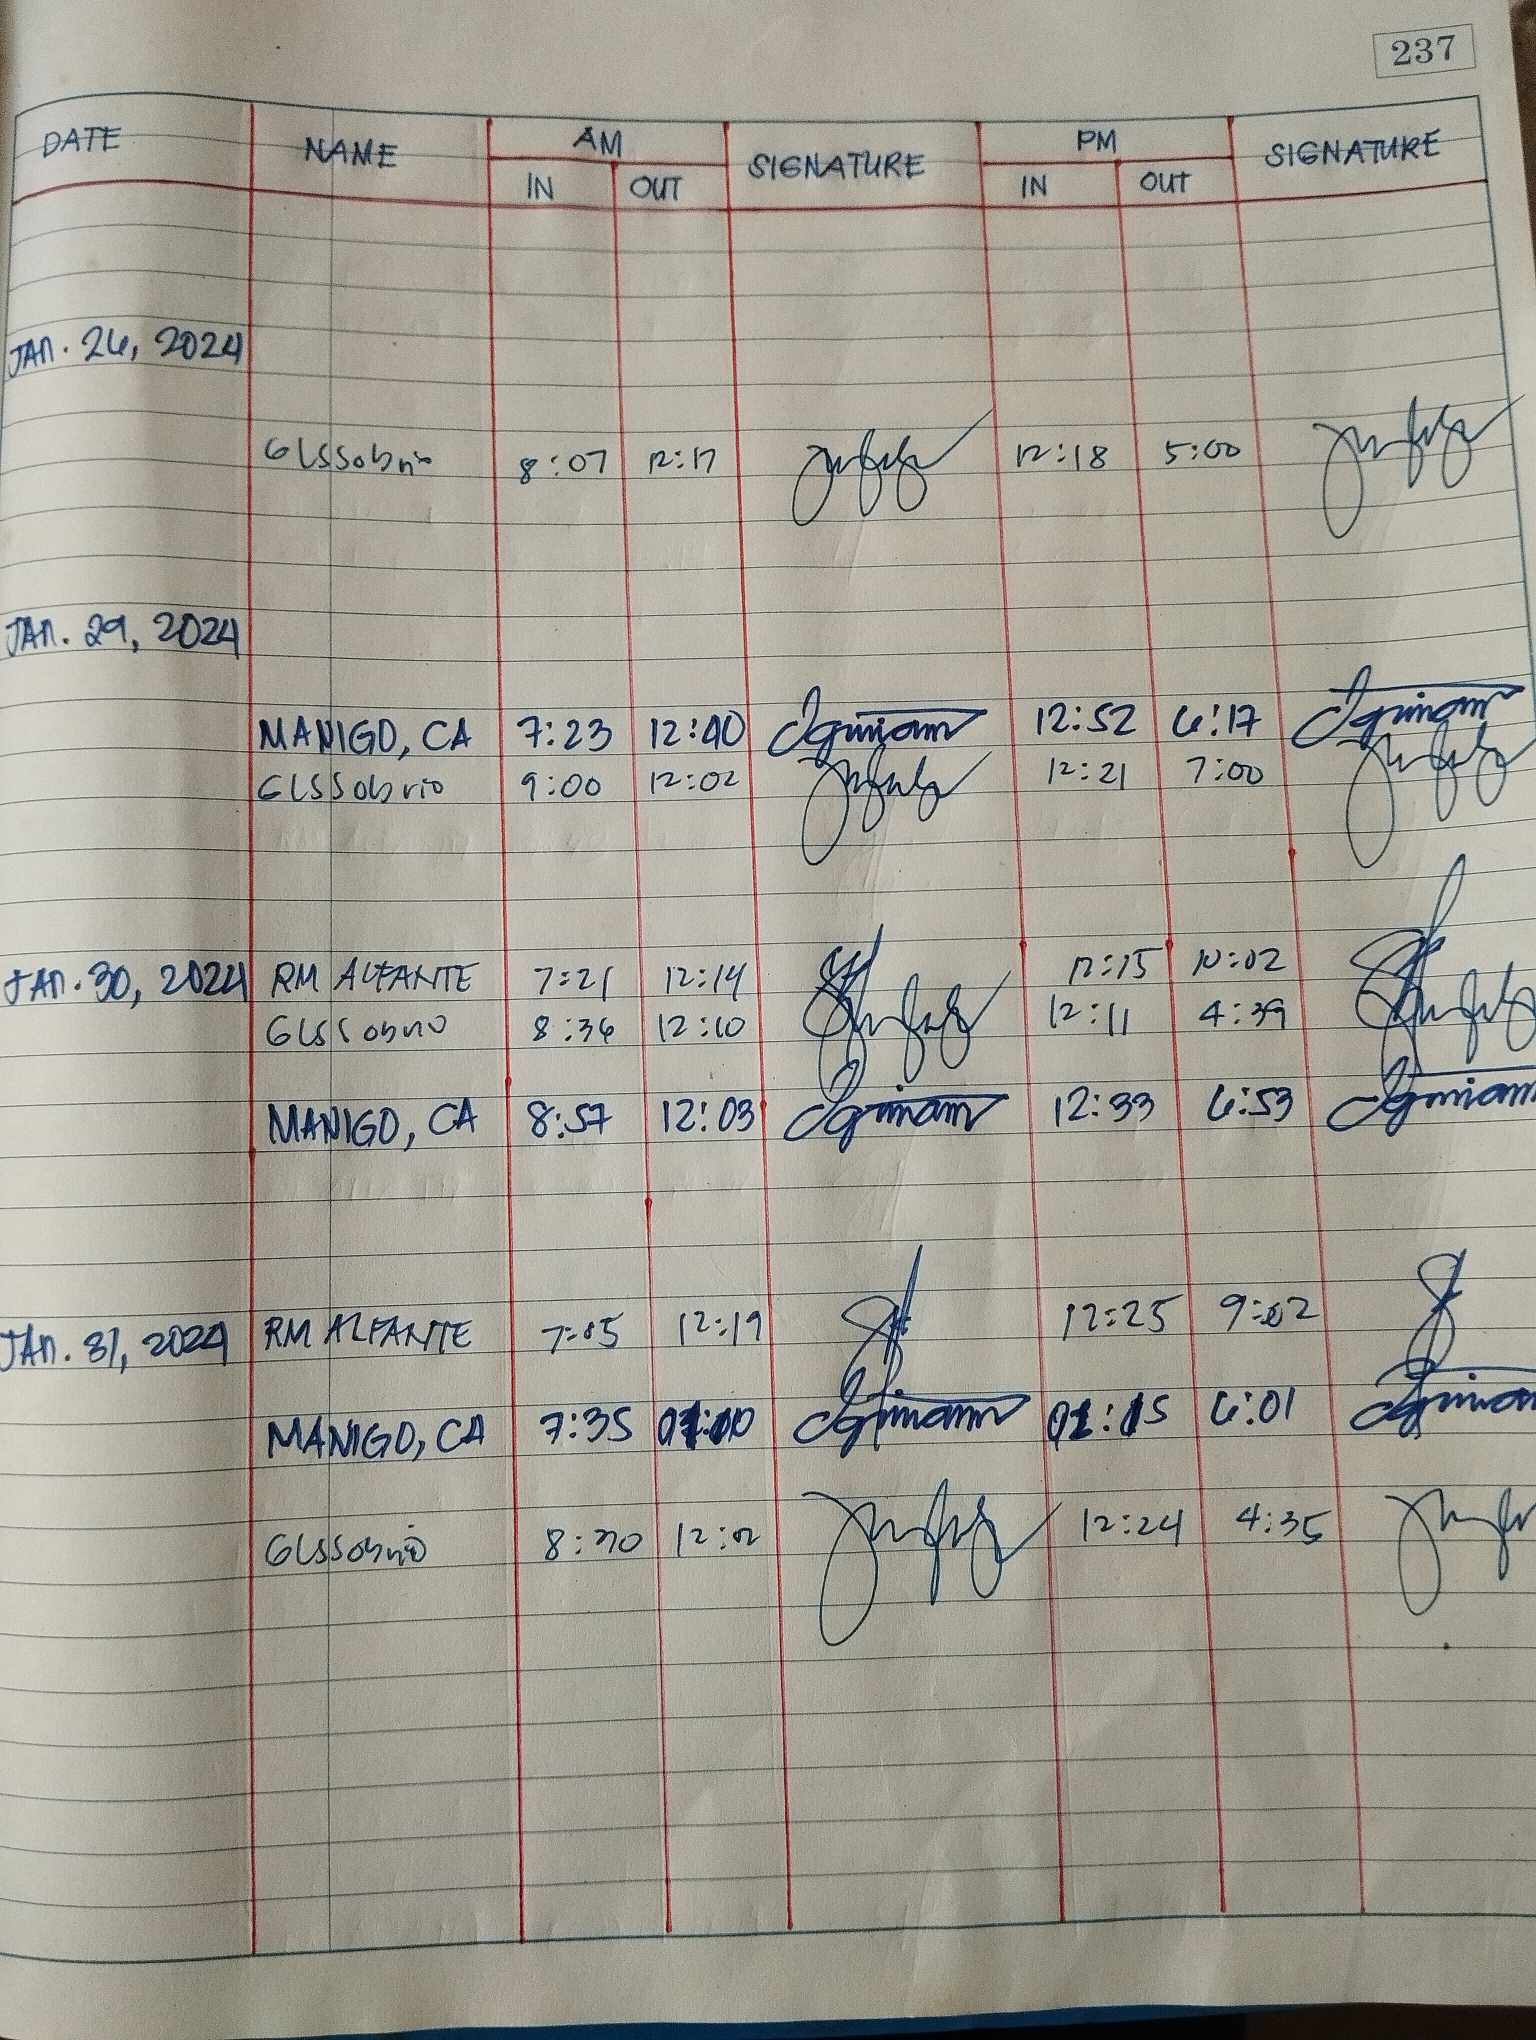 237
DATE NAME AM SIGNATURE PM SIGNATURE
IN OUT IN OUT
JAN. 26, 2024
GLSSobrio 8:07 12:17 12:18 5:00
JAN. 29, 2024
MANIGO, CA 7:23 12:40 12:52 6:17
GLSSobrio 9:00 12:02 12:21 7:00
JAN. 30, 2024 RM ALFANTE 7:21 12:14 12:15 10:02
GLSSobrio 8:36 12:10 12:11 4:39
MANIGO, CA 8:57 12:03 12:33 6:53
JAN. 31, 2024 RM ALFANTE 7:05 12:19 12:25 9:02
MANIGO, CA 7:35 6:01
GLSSobrio 12:02 12:24 4:35